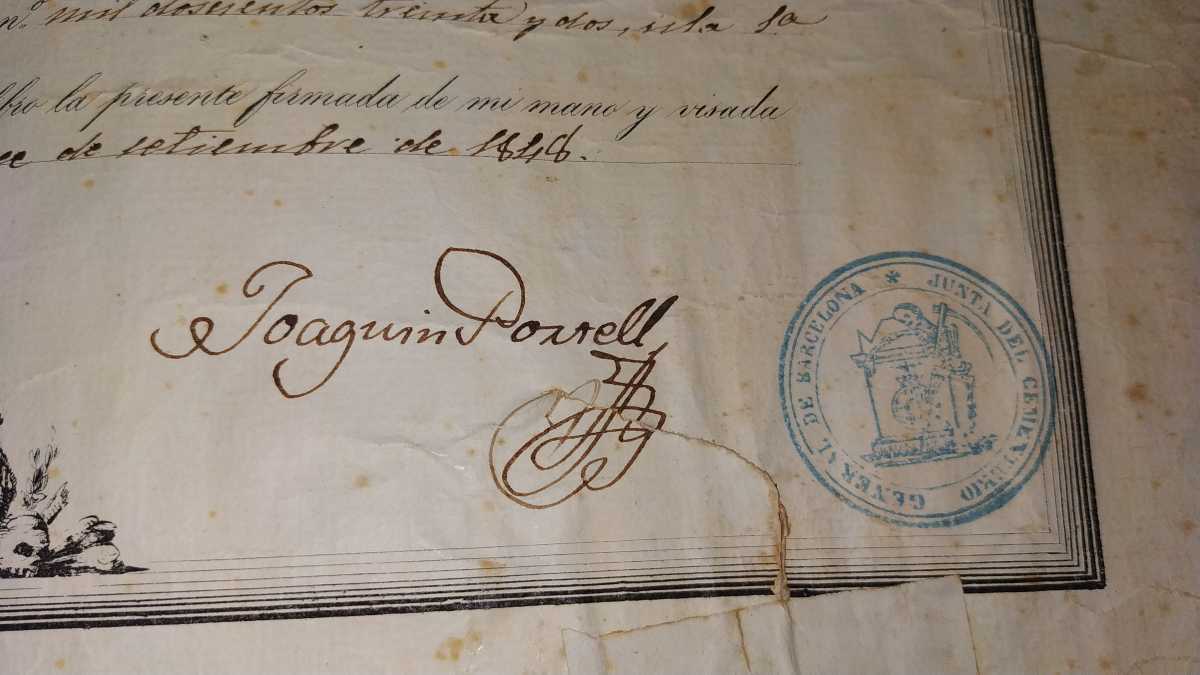 nº. mil doscientos treinta y dos, isla 1ª
libro la presente firmada de mi mano y visada
de setiembre de 1848.
Joaquin Borrell
JUNTA DEL CEMENTERIO GENERAL DE BARCELONA *